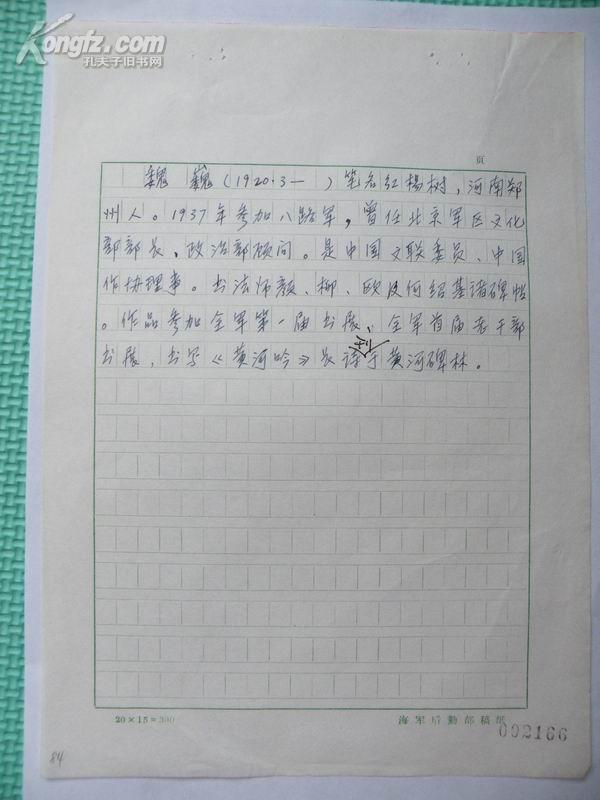 Kongfz.com
孔夫子旧书网
页
魏 巍(1920.3— )笔名红杨树,河南郑
州人。1937年参加八路军,曾任北京军区文化
部部长、政治部顾问。是中国文联委员、中国
作协理事。书法师颜、柳、欧及何绍基诸碑帖
。作品参加全军第一届书展、全军首届老干部
书展,书写《黄河吟》长诗于黄河碑林。
20×15=300
海军后勤部稿纸
002166
84